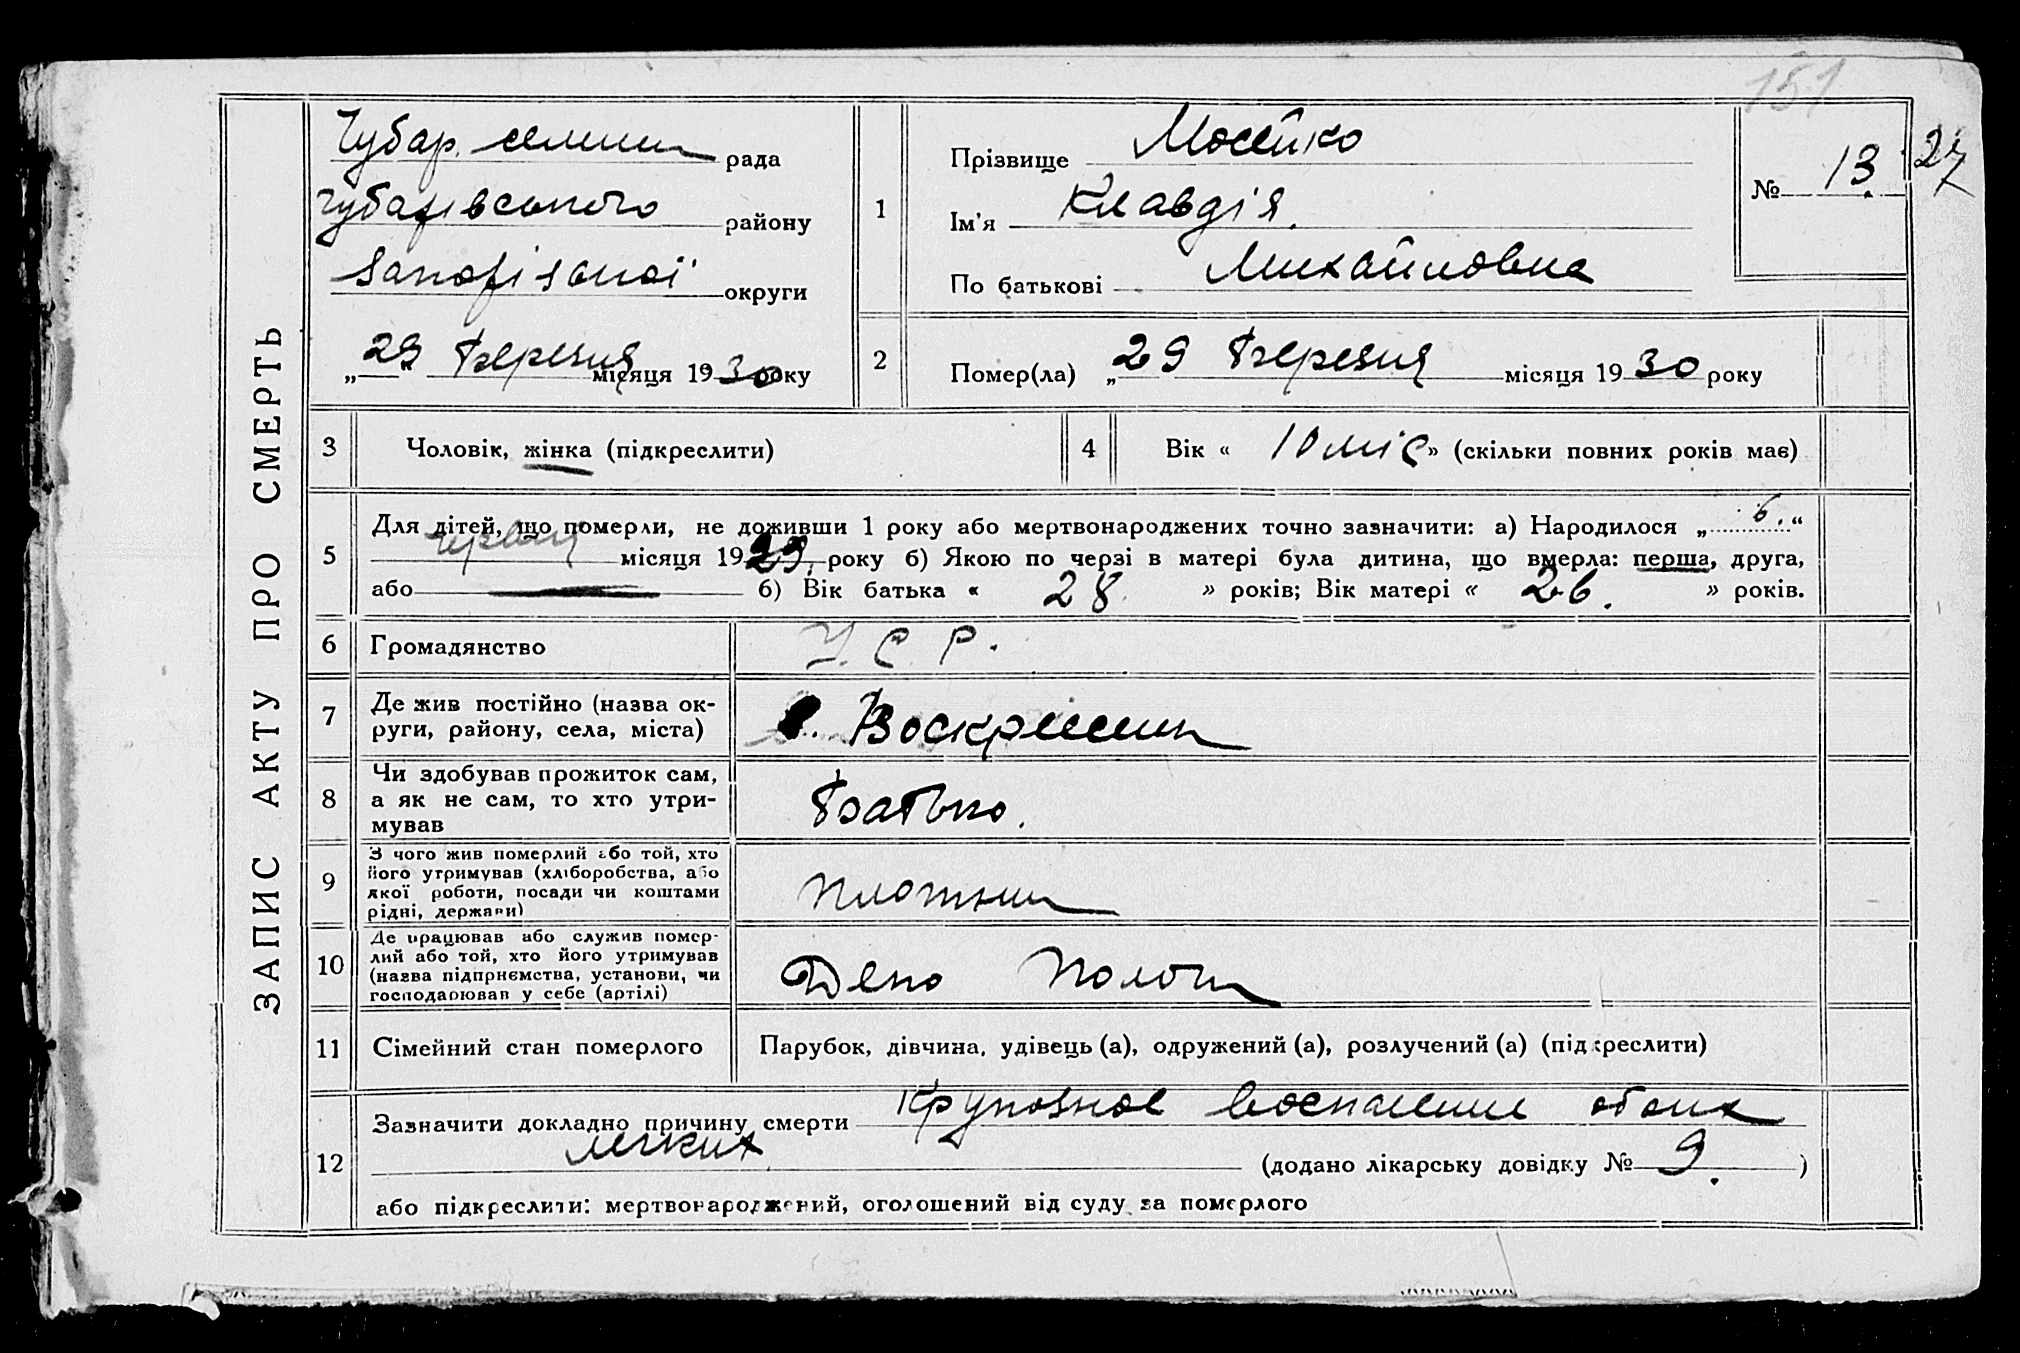 151
ЗАПИС АКТУ ПРО СМЕРТЬ
Чубар. селищн рада
Чубарівського району
Запорізької округи
„29“ березня місяця 1930 року
1
Прізвище Мосейко
Ім'я Клавдія.
По батькові Михайловна
№ 13. 27
2
Помер(ла) „29 березня місяця 1930 року
3 Чоловік, жінка (підкреслити)
4 Вік « 10 міс» (скільки повних років має)
5 Для дітей, що померли, не доживши 1 року або мертвонароджених точно зазначити: а) Народилося „ 6. “
червня місяця 1929, року б) Якою по черзі в матері була дитина, що вмерла: перша, друга,
або б) Вік батька « 28. » років; Вік матері « 26. » років.
6 Громадянство У. С. Р.
7 Де жив постійно (назва ок-
руги, району, села, міста)
с. Воскресен
8 Чи здобував прожиток сам,
а як не сам, то хто утри-
мував
Батько.
9 З чого жив померлий або той, хто
його утримував (хліборобства, або
якої роботи, посади чи коштами
рідні, держави)
плотник
10 Де працював або служив помер-
лий або той, хто його утримував
(назва підприємства, установи, чи
господарював у себе (артілі)
Депо Пологи
11 Сімейний стан померлого Парубок, дівчина, удівець (а), одружений (а), розлучений (а) (підкреслити)
12 Зазначити докладно причину смерти Крупозное воспаление обоих
легких (додано лікарську довідку № 9. )
або підкреслити: мертвонароджений, оголошений від суду за померлого